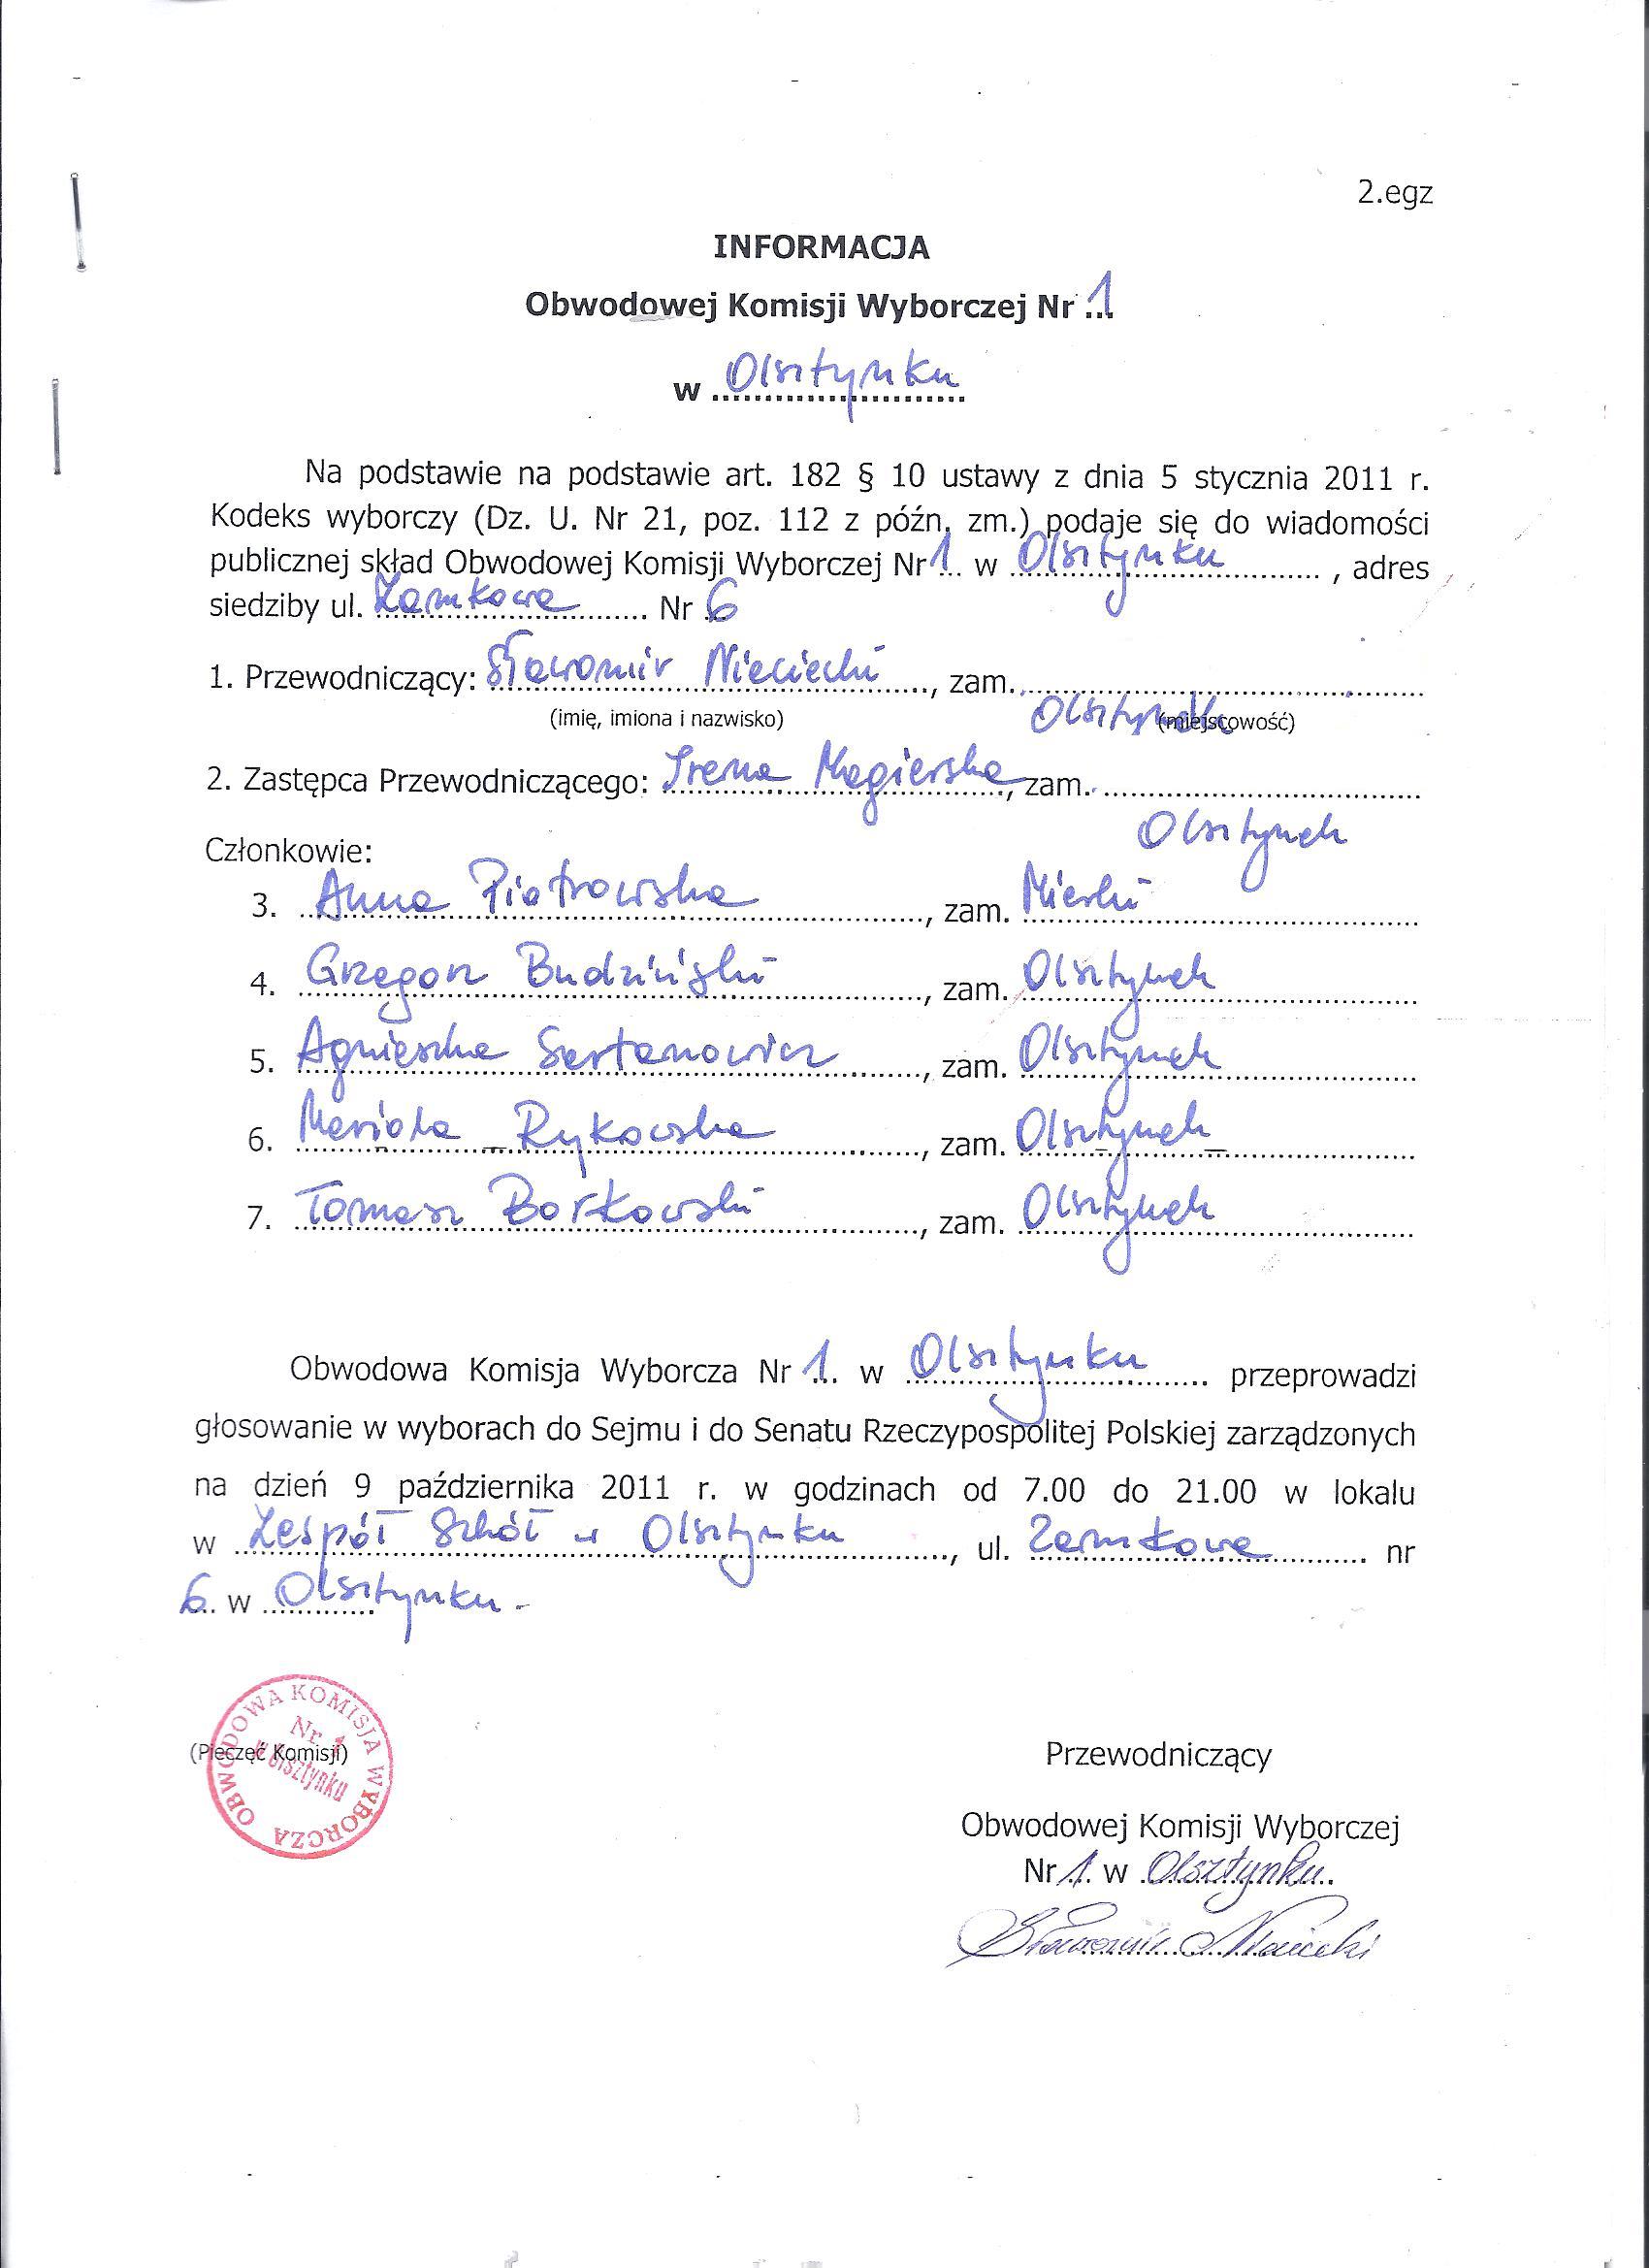 2.egz
INFORMACJA
Obwodowej Komisji Wyborczej Nr 1
w Olsztynku
Na podstawie na podstawie art. 182 § 10 ustawy z dnia 5 stycznia 2011 r.
Kodeks wyborczy (Dz. U. Nr 21, poz. 112 z późn. zm.) podaje się do wiadomości
publicznej skład Obwodowej Komisji Wyborczej Nr 1. w Olsztynku, adres
siedziby ul. Zamkowa Nr 6
1. Przewodniczący: Sławomir Nieciecki, zam.
(imię, imiona i nazwisko) Olsztynek (miejscowość)
2. Zastępca Przewodniczącego: Irena Magierska, zam.
Olsztynek
Członkowie:
3. Anna Piotrowska, zam. Mierki
4. Grzegorz Budziński, zam. Olsztynek
5. Agnieszka Sertanowicz, zam. Olsztynek
6. Mariola Rykowska, zam. Olsztynek
7. Tomasz Borkowski, zam. Olsztynek
Obwodowa Komisja Wyborcza Nr 1. w Olsztynku przeprowadzi
głosowanie w wyborach do Sejmu i do Senatu Rzeczypospolitej Polskiej zarządzonych
na dzień 9 października 2011 r. w godzinach od 7.00 do 21.00 w lokalu
w Zespół Szkół w Olsztynku, ul. Zamkowa nr
6. w Olsztynku.
OBWODOWA KOMISJA WYBORCZA
Nr 1
w Olsztynku
(Pieczęć Komisji)
Przewodniczący
Obwodowej Komisji Wyborczej
Nr 1. w Olsztynku.
Sławomir Nieciecki